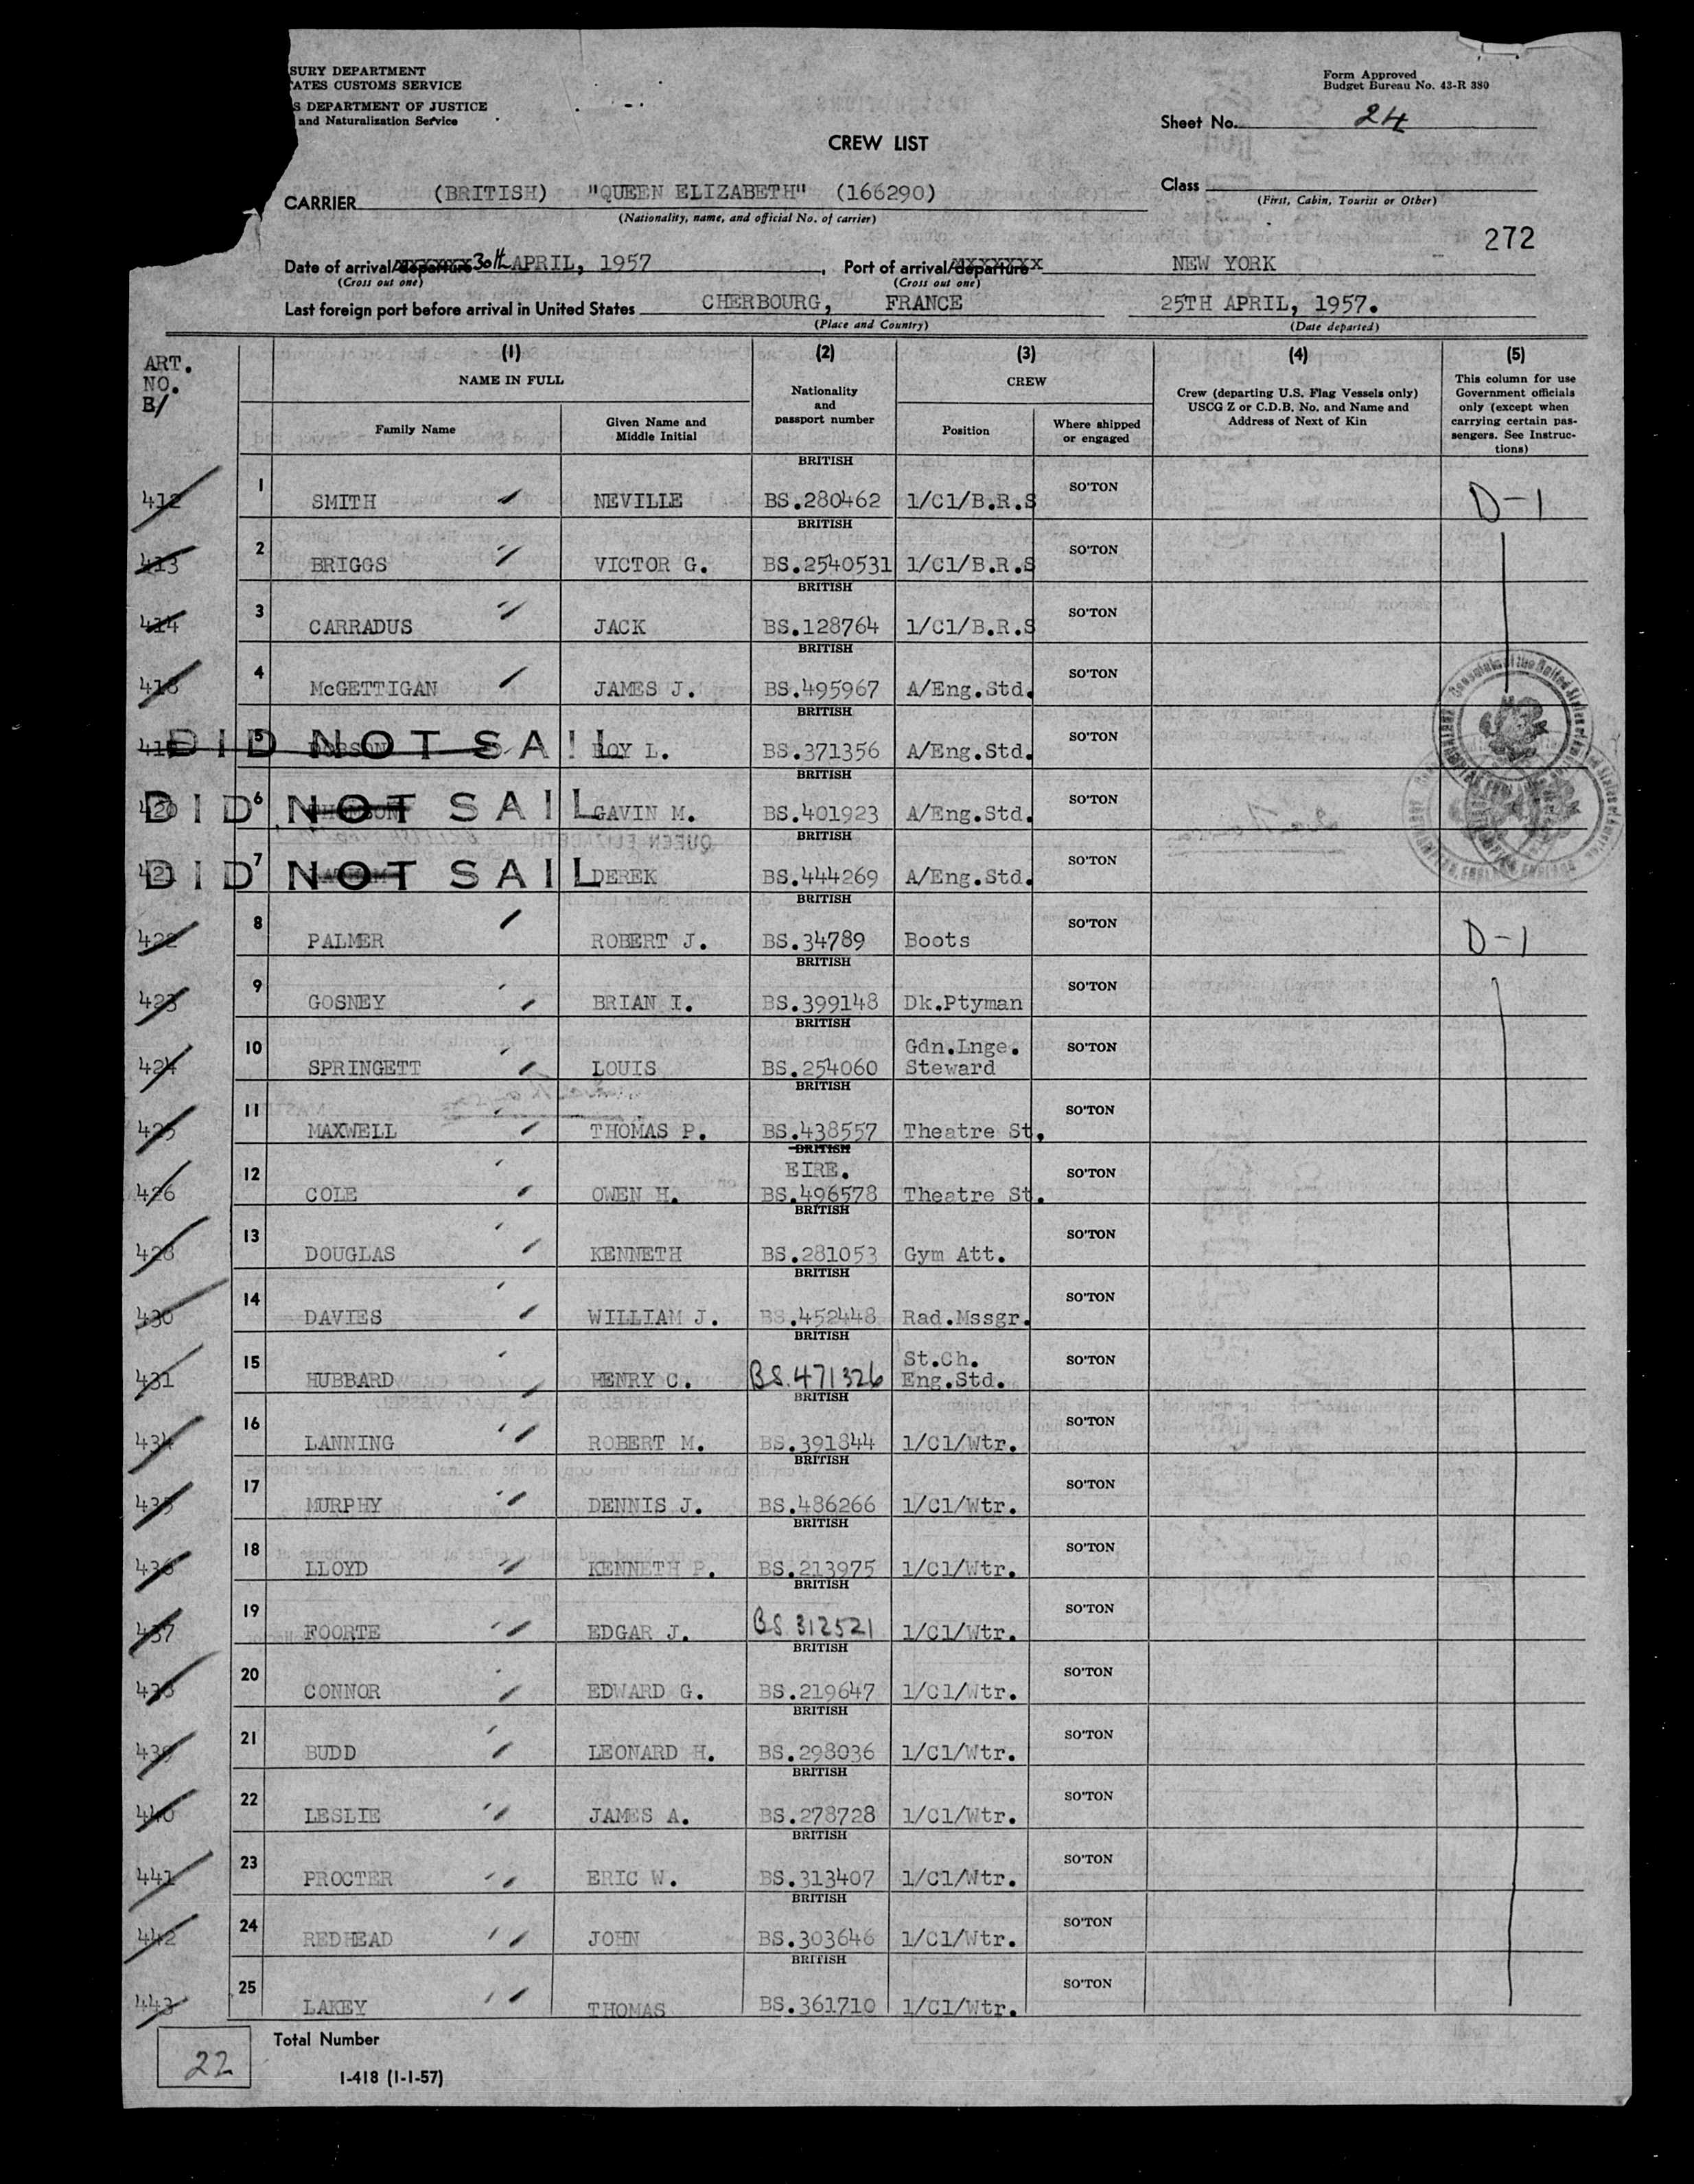 SURY DEPARTMENT
TATES CUSTOMS SERVICE
S DEPARTMENT OF JUSTICE
and Naturalization Service
Form Approved
Budget Bureau No. 43-R 380
Sheet No. 24
CREW LIST
Class
(First, Cabin, Tourist or Other)
CARRIER (BRITISH) "QUEEN ELIZABETH" (166290)
(Nationality, name, and official No. of carrier)
272
Date of arrival/departure 30th APRIL, 1957, Port of arrival/departure NEW YORK
(Cross out one) (Cross out one)
Last foreign port before arrival in United States CHERBOURG, FRANCE 25TH APRIL, 1957.
(Place and Country) (Date departed)
ART. NO. B/
(1) (2) (3) (4) (5)
NAME IN FULL
Family Name
Given Name and Middle Initial
Nationality and passport number
CREW
Position
Where shipped or engaged
Crew (departing U.S. Flag Vessels only) USCG Z or C.D.B. No. and Name and Address of Next of Kin
This column for use Government officials only (except when carrying certain passengers. See Instructions)
BRITISH
412 1 SMITH NEVILLE BS.280462 1/Cl/B.R.S SO'TON D-1
BRITISH
413 2 BRIGGS VICTOR G. BS.2540531 1/Cl/B.R.S SO'TON
BRITISH
414 3 CARRADUS JACK BS.128764 1/Cl/B.R.S SO'TON
BRITISH
418 4 McGETTIGAN JAMES J. BS.495967 A/Eng.Std. SO'TON
BRITISH
5 DID NOT SAIL ROY L. BS.371356 A/Eng.Std. SO'TON
BRITISH
420 6 DID NOT SAIL GAVIN M. BS.401923 A/Eng.Std. SO'TON
BRITISH
421 7 DID NOT SAIL DEREK BS.444269 A/Eng.Std. SO'TON
BRITISH
422 8 PALMER ROBERT J. BS.34789 Boots SO'TON D-1
BRITISH
423 9 GOSNEY BRIAN I. BS.399148 Dk.Ptyman SO'TON
BRITISH
424 10 SPRINGETT LOUIS BS.254060 Gdn.Lnge. Steward SO'TON
BRITISH
425 11 MAXWELL THOMAS P. BS.438557 Theatre St. SO'TON
BRITISH
EIRE.
426 12 COLE OWEN H. BS.496578 Theatre St. SO'TON
BRITISH
428 13 DOUGLAS KENNETH BS.281053 Gym Att. SO'TON
BRITISH
430 14 DAVIES WILLIAM J. BS.452448 Rad.Mssgr. SO'TON
BRITISH
431 15 HUBBARD HENRY C. BS.471326 St.Ch. Eng.Std. SO'TON
BRITISH
434 16 LANNING ROBERT M. BS.391844 1/Cl/Wtr. SO'TON
BRITISH
435 17 MURPHY DENNIS J. BS.486266 1/Cl/Wtr. SO'TON
BRITISH
436 18 LLOYD KENNETH P. BS.213975 1/Cl/Wtr. SO'TON
BRITISH
437 19 FOORTE EDGAR J. BS 312521 1/Cl/Wtr. SO'TON
BRITISH
438 20 CONNOR EDWARD G. BS.219647 1/Cl/Wtr. SO'TON
BRITISH
439 21 BUDD LEONARD H. BS.298036 1/Cl/Wtr. SO'TON
BRITISH
440 22 LESLIE JAMES A. BS.278728 1/Cl/Wtr. SO'TON
BRITISH
441 23 PROCTER ERIC W. BS.313407 1/Cl/Wtr. SO'TON
BRITISH
442 24 REDHEAD JOHN BS.303646 1/Cl/Wtr. SO'TON
BRITISH
443 25 LAKEY THOMAS BS.361710 1/Cl/Wtr. SO'TON
22 Total Number
I-418 (1-1-57)